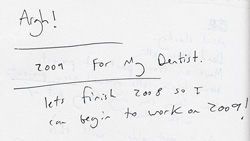 Argh!
2009 For My Dentist.
lets finish 2008 so I
can begin to work on 2009!